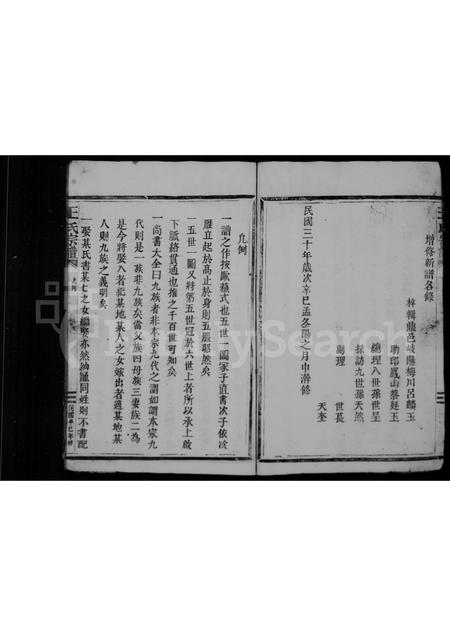 增修新譜名錄
梓輯鼎邑岐陽梅川呂麟玉
助印鳳山蔡廷玉
總理八世孫世呈
採訪九世孫天然
副理 世長
天奎
民國三十年歲次辛巳孟冬陽之月中澣修
凡例
一譜之作按歐蘇式也五世一圖冢子直書次子依次
雁立起於高止於身則五服昭然矣
一五世一圖又將第五世冠於六世上者所以承上啟
下脈絡貫通也推之千百世可知矣
一尚書大全曰九族者非本宗九代之謂如謂本宗九
代則是一族非九族矣當父族四母族三妻族二為
是今將娶入者紀某地某人之女嫁出者適某地某
人則九族之義明矣
一娶某氏書某氏之女繼娶亦然汕同姓則不書配
王氏宗譜
凡例
民國辛巳年修
FamilySearch